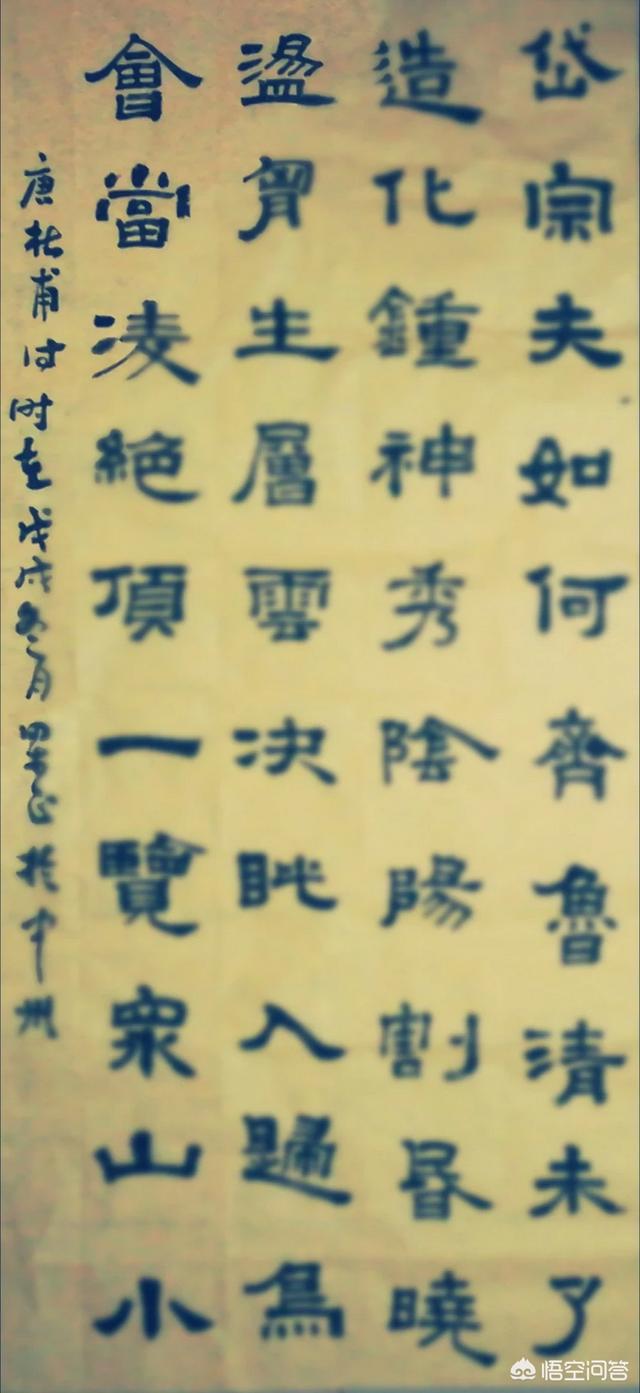 岱宗夫如何齊魯清未了
造化鍾神秀陰陽割昏曉
盪胷生層雲决眦入歸鳥
會當凌絶頂一覽衆山小
唐杜甫诗时在戊戌冬月於中州
悟空问答